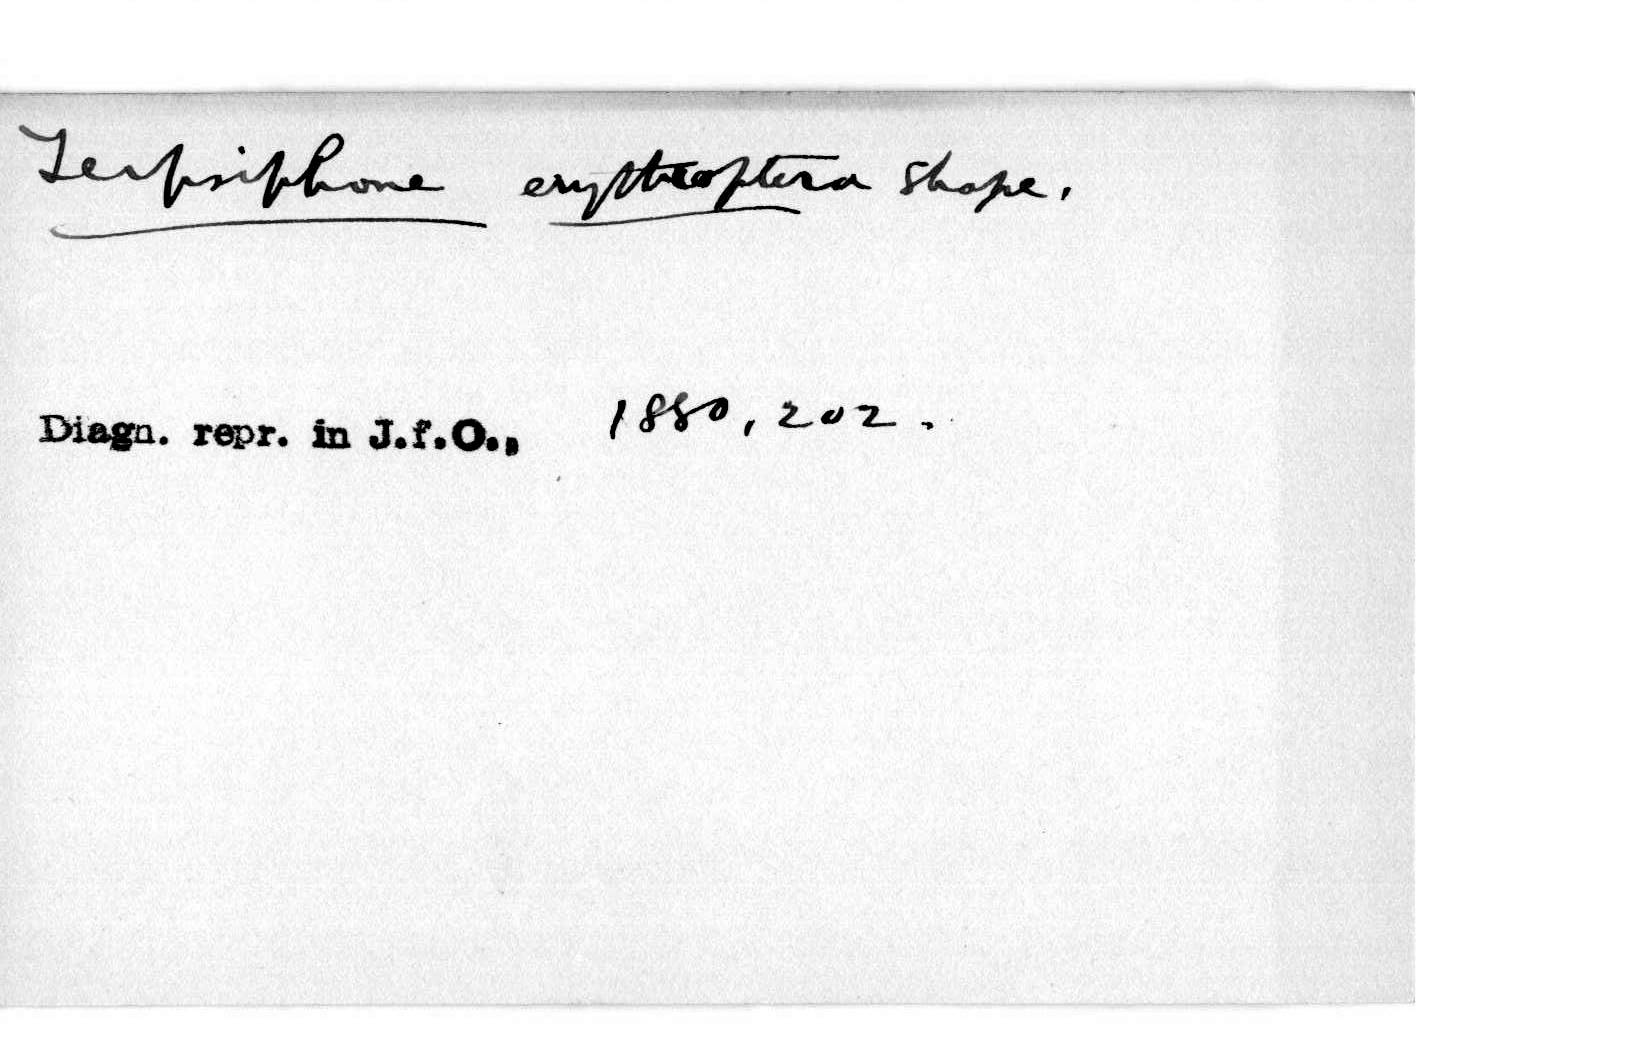 Terpsiphone erythroptera Sharpe.
Diagn. repr. in J.f.O., 1880, 202.